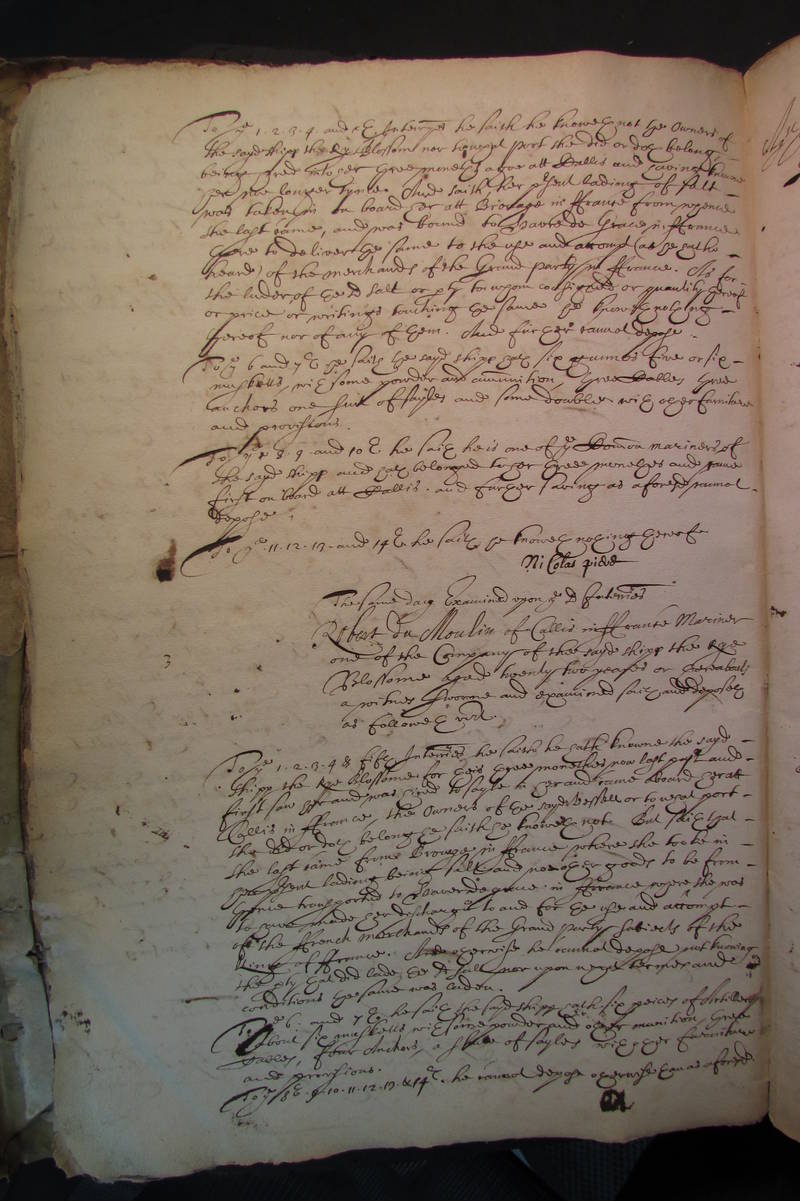 To ye 1. 2. 3. 4. and 5th Interries he saith he knoweth not the Owners of
the sayd shipp the Rye Blossom nor to what port she did or doth belong
being hired into her three moneths agoe att Callis and having knowne
her noe longer tyme. And saith her present lading of salt
was taken in on board her att Brouage in ffrance from whence
she last came, and was bound to Haver de Grace in ffrance
there to deliver the same to the use and accompt (as he hath
heard) of the Merchands of the Grand party in ffrance. As for
the lader of the sd salt or pty to whom consigned or quantity thereof
or price or writings touching the same he knoweth nothing
thereof nor of any of them. And further cannot depose.
To ye 6 and 7th he saith the sayd shipp hath six gunnes five or six
musketts, with some powder and amunition, three Cables three
anchors one suit of sayles and some double with other furniture
and provisions.
To ye 8. 9. and 10th he saith he is one of ye Common mariners of
the sayd shipp and hath belonged to her three moneths and came
first on board att Callis. and further saving as aforesd cannot
depose
To ye 11. 12. 13. and 14th he saith he knoweth nothing thereof
Nicolas
The same day Examined upon ye sd Interries
Robert du Moulin of Callis in ffrance Mariner
one of the Company of the sayd shipp the Rye
Blossome aged twenty two yeares or thereabouts
a witnes sworne and examined saith and deposeth
as followeth vizt.
To ye 1. 2. 3. 4 & fifth Interries he saith he hath knowne the sayd
shipp the Rye Blossome for theis three monethes now last past and
first saw her and was hired to sayle in her and came aboard her att
Callis in ffrance, the Owners of the sayd Vessell or to what port
she did or doth belong he saith he knoweth not. But saith that
she last came from Brouage in ffrance where she tooke in
her present lading being salt and noe other goods to be from
thence transported to Haver de grace in ffrance where she was
to have made her discharge to and for the use and accompt
of the ffrench Merchands of the Grand party subiects of the
King of ffrance. And otherwise he cannot depose not knowing
the pty that did lade the sd salt nor upon what termes and
conditions the same was laden.
To ye 6. and 7th he saith the sayd shipp hath six peices of Artillery
about six musketts with some powder and other munition, three
Cables, four Anchors, a suite of sayles with other furniture
and provisions.
To ye 8th. 9. 10. 11. 12. 13. & 14th. he cannot depose otherwise than as aforesd